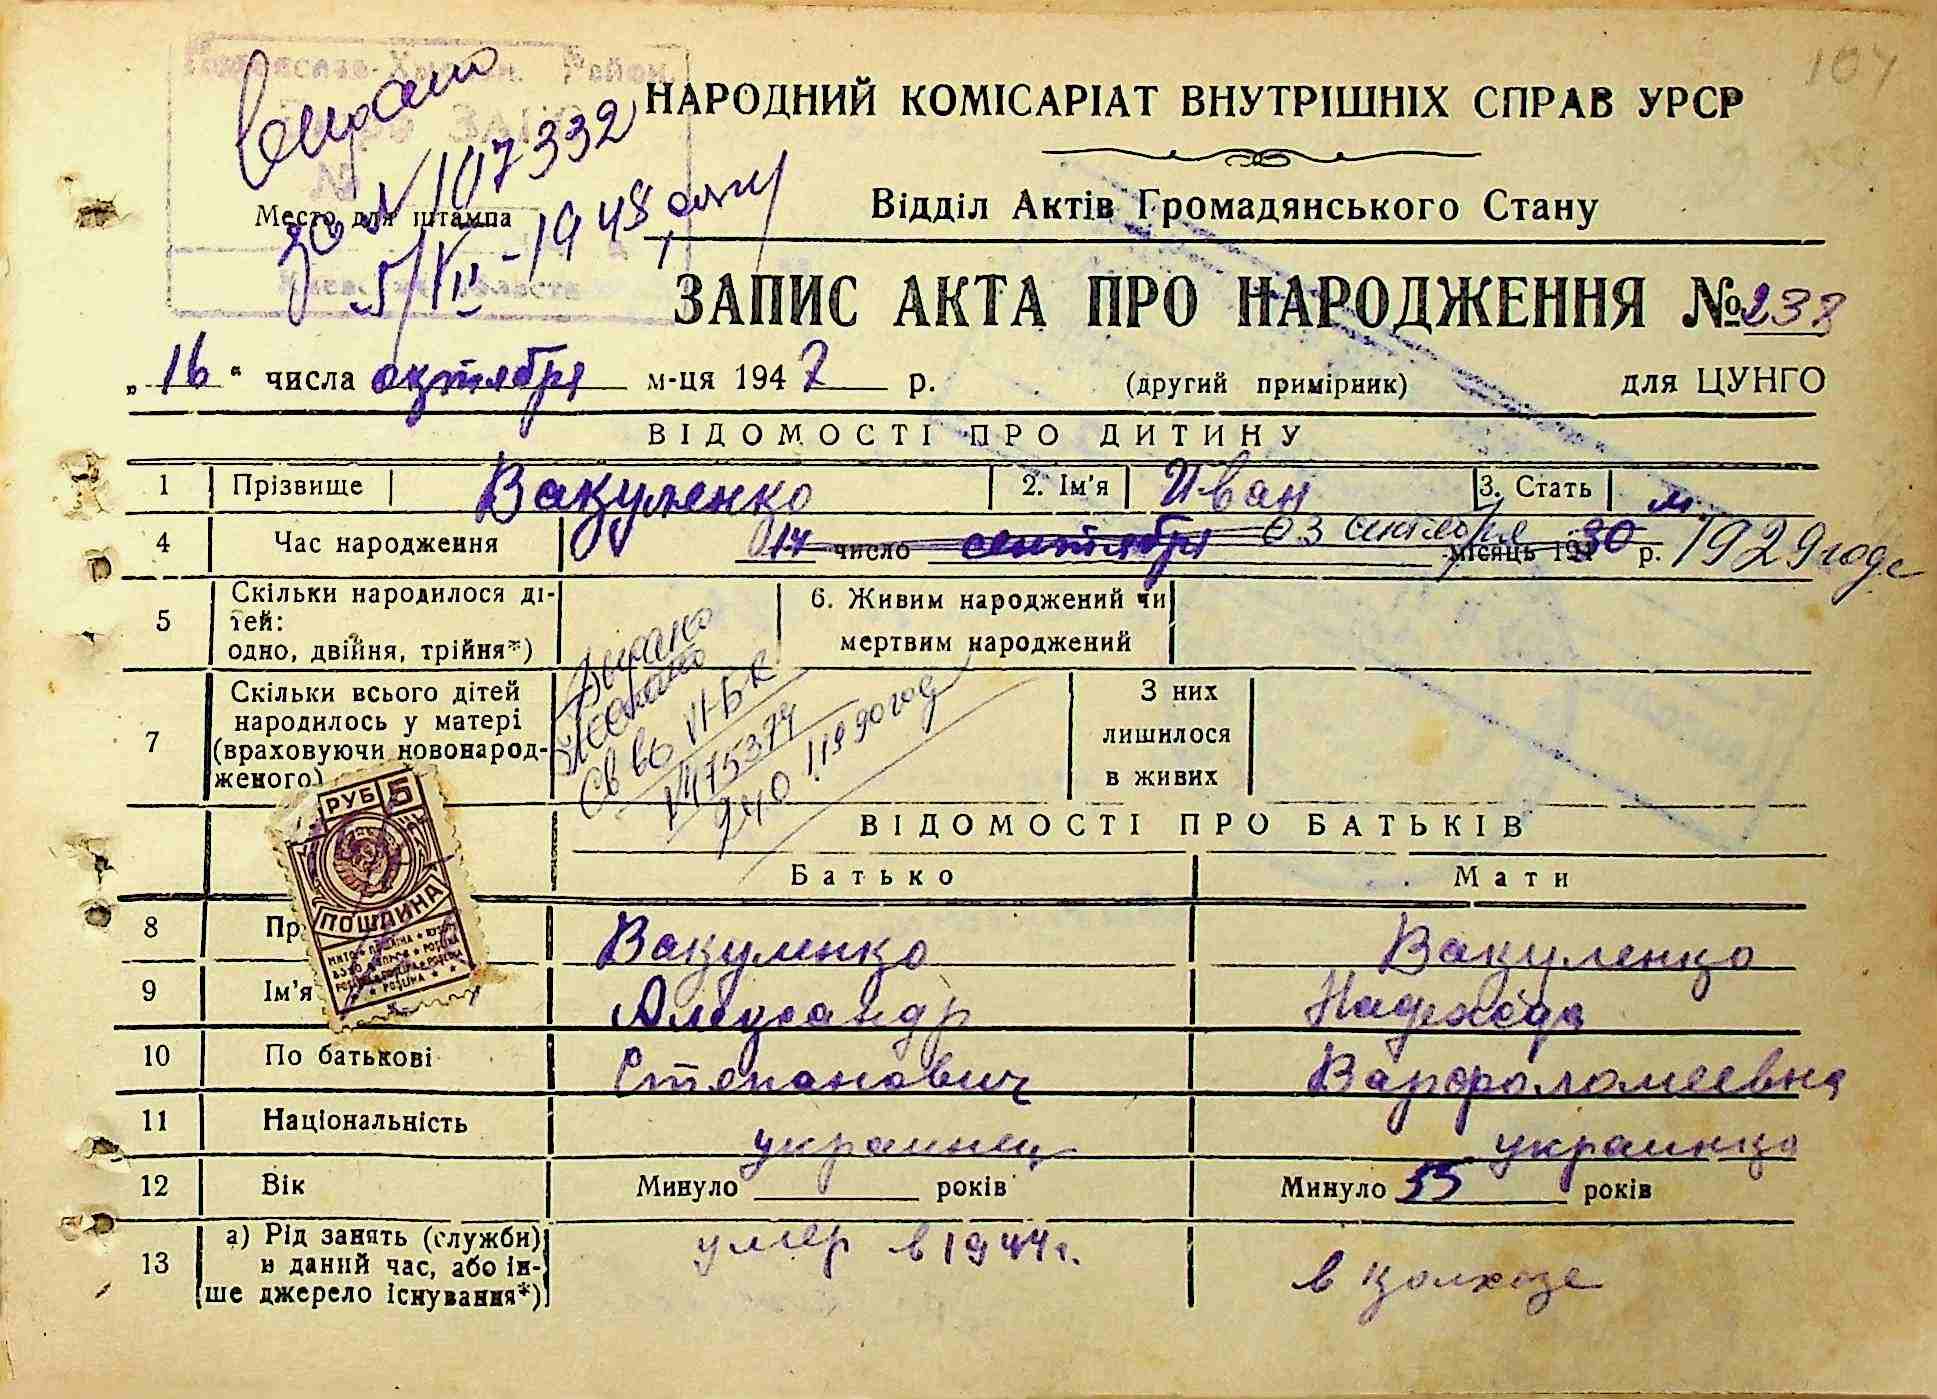 104
Район.
ЗАГС
Выдано
№ 107332
5/VII-1948
Место для штампа
НАРОДНИЙ КОМІСАРІАТ ВНУТРІШНІХ СПРАВ УРСР
Відділ Актів Громадянського Стану
ЗАПИС АКТА ПРО НАРОДЖЕННЯ № 238
„16“ числа октября м-ця 1947 р. (другий примірник) для ЦУНГО
ВІДОМОСТІ ПРО ДИТИНУ
1 Прізвище Вакуленко 2. Ім'я Иван 3. Стать м.
4 Час народження 14 число сентября 03 сентября місяць 1930 р. 1929 года
5 Скільки народилося ді-
тей:
одно, двійня, трійня*)
6. Живим народжений чи
мертвим народжений
7 Скільки всього дітей
народилось у матері
(враховуючи новонарод-
женого)
З них
лишилося
в живих
Выдано
Св во VI-БК
175374
1990 год
РУБ 5
ПОШЛИНА
ВІДОМОСТІ ПРО БАТЬКІВ
Батько Мати
8 Пр Вакуленко Вакуленко
9 Ім'я Александр Надежда
10 По батькові Степанович Варфоломеевна
11 Національність украинец украинка
12 Вік Минуло років Минуло 55 років
13 а) Рід занять (служби)
в даний час, або ін-
ше джерело існування*)
умер в 1944 г. в колхозе